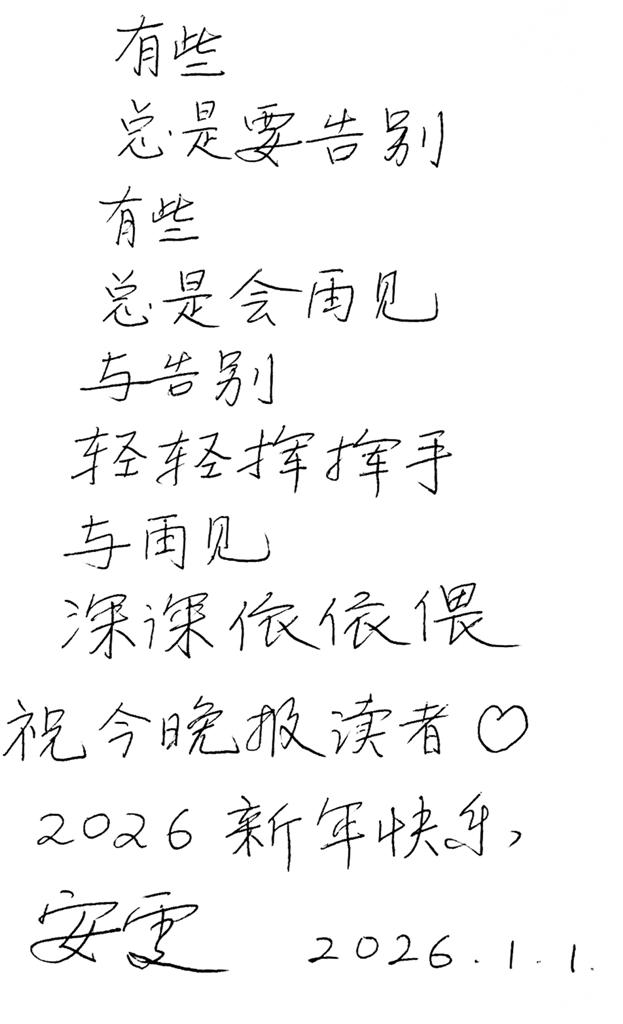 有些
总是要告别
有些
总是会再见
与告别
轻轻挥挥手
与再见
深深依依偎
祝今晚报读者♡
2026新年快乐,
安雯 2026.1.1.